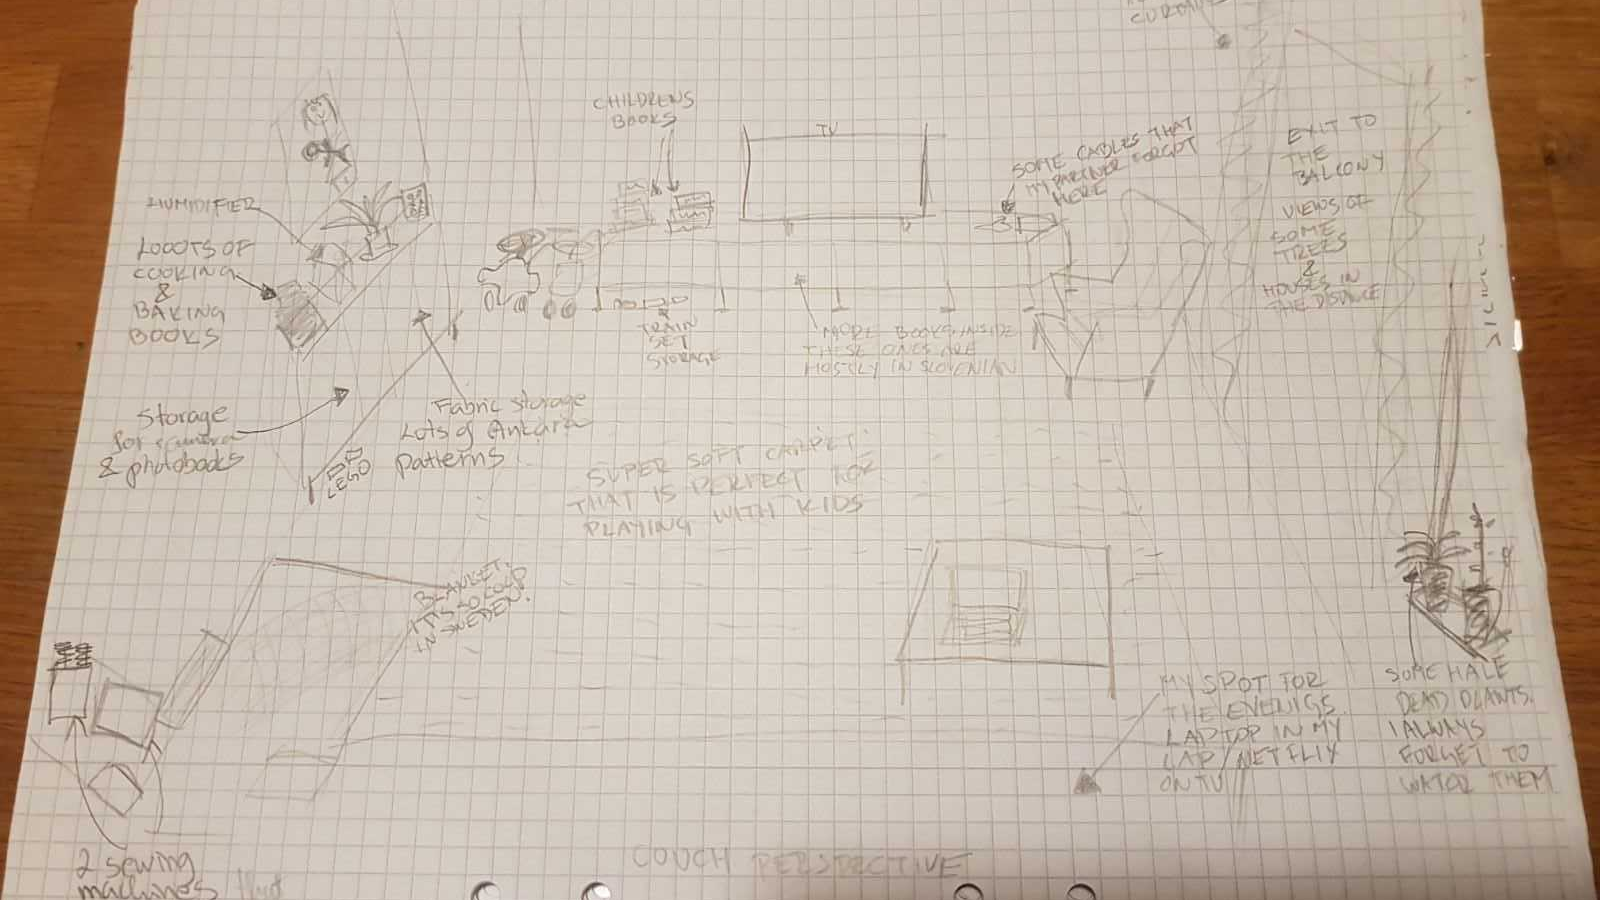 CURTAI
CHILDRENS
BOOKS
TV
SOME CABLES THAT
MY PARTNER FORGOT
HERE
EXIT TO
THE
BALCONY
VIEWS OF
SOME
TREES
&
HOUSES IN
THE DISTANCE
HUMIDIFIER
LOOOTS OF
COOKING
&
BAKING
BOOKS
TRAIN
SET
STORAGE
MORE BOOKS INSIDE
THESE ONES ARE
MOSTLY IN SLOVENIAN
Storage
for camera
& photobooks
LEGO
Fabric storage
Lots of Ankara
patterns
SUPER SOFT CARPET.
THAT IS PERFECT FOR
PLAYING WITH KIDS
BLANKET.
IT'S SO COLD
IN SWEDEN!
MY SPOT FOR
THE EVENIGS.
LAPTOP IN MY
LAP / NETFLIX
ON TV
SOME HALF
DEAD PLANTS.
I ALWAYS
FORGET TO
WATER THEM
2 sewing
machines
COUCH PERSPECTIVE